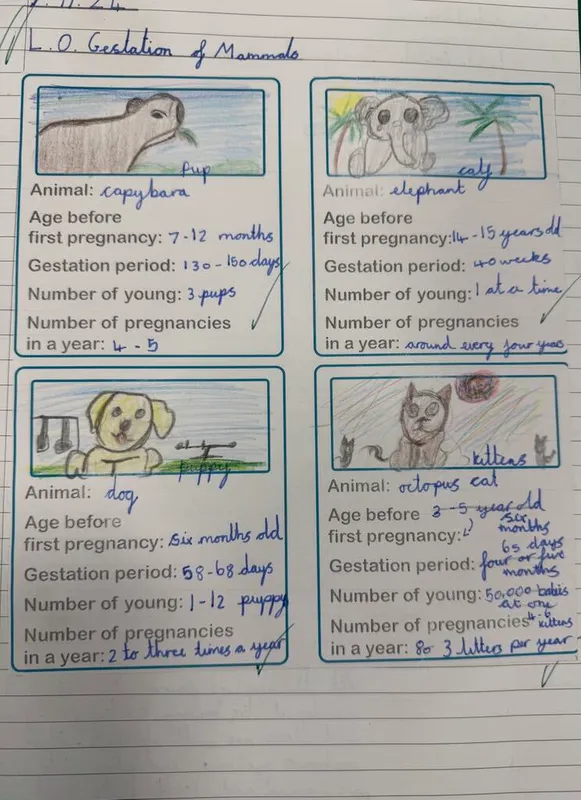 L.O. Gestation of Mammals
pup
Animal: capybara
Age before
first pregnancy: 7-12 months
Gestation period: 130-150 days
Number of young: 3 pups
Number of pregnancies
in a year: 4-5
calf
Animal: elephant
Age before
first pregnancy: 14-15 years old
Gestation period: 40 weeks
Number of young: 1 at a time
Number of pregnancies
in a year: around every four years
puppy
Animal: dog
Age before
first pregnancy: six months old
Gestation period: 58-68 days
Number of young: 1-12 puppy
Number of pregnancies
in a year: 2 to three times a year
kittens
Animal: octopus cat
Age before 3-5 year old
six
first pregnancy: months
65 days
Gestation period: four or five
months
Number of young: 50,000 babis
at one
4-6
Number of pregnancies kittens
in a year: 3 litters per year